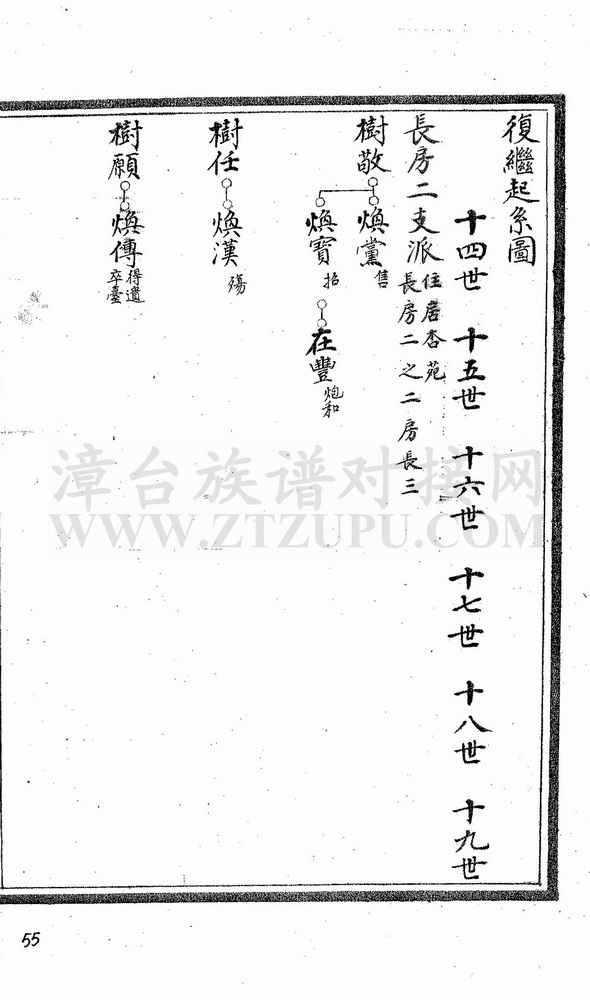 復繼起系圖
十四世 十五世 十六世 十七世 十八世 十九世
長房二支派 住居杏苑
長房二之二房長三
樹敬 煥黨 售
煥寶 招 在豐 炮和
樹任 煥漢 殤
樹願 煥傳 得遺
卒臺
漳台族谱对接网
WWW.ZTZUPU.COM
55